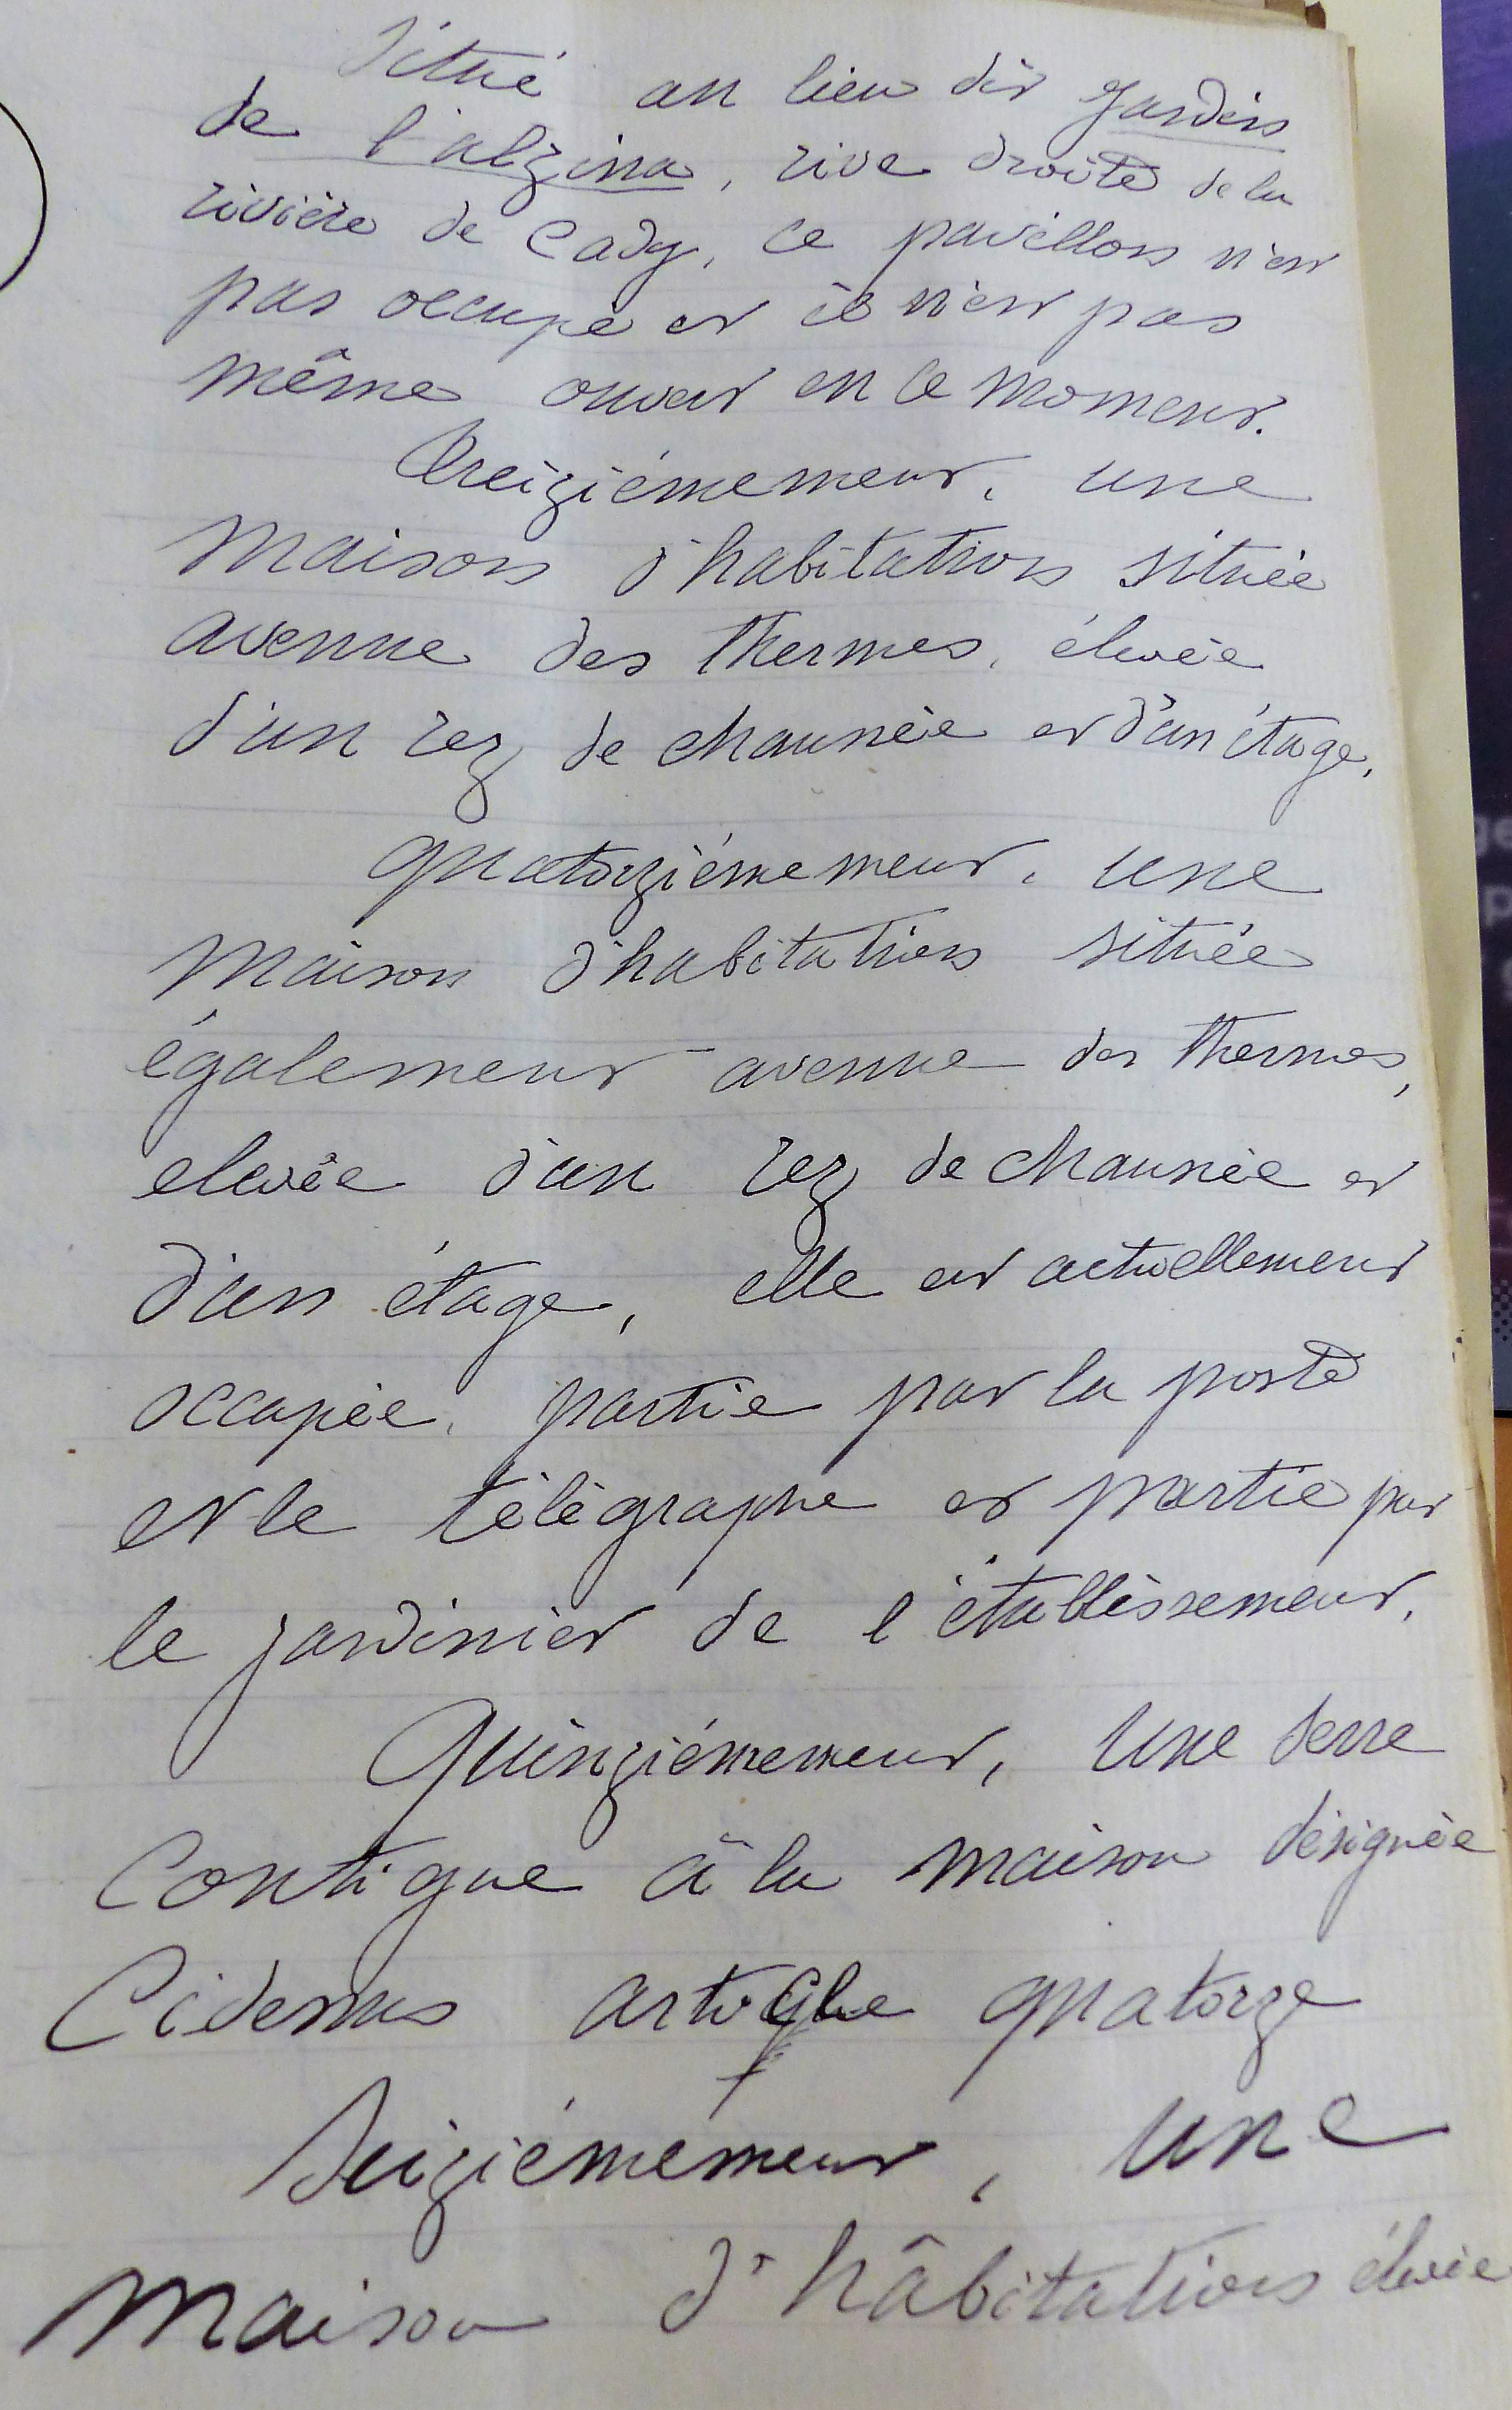 Situé au lieu dit Jardin
de l'alzina, rive droite de la
rivière de Cady, ce pavillon n'est
pas occupé et il n'est pas
même ouvert en ce moment.
Treizièmement, une
maison d'habitation située
avenue des Thermes, élevée
d'un rez de chaussée et d'un étage.
Quatorzièmement, une
maison d'habitation située
également avenue des Thermes,
elevée d'un rez de chaussée et
d'un étage, elle est actuellement
occupée, partie par la poste
et le télégraphe et partie par
le jardinier de l'établissement.
Quinzièmement, une serre
contigue à la maison désignée
Cidessus article quatorze
Seizièmement, une
maison d'hâbitation élevée